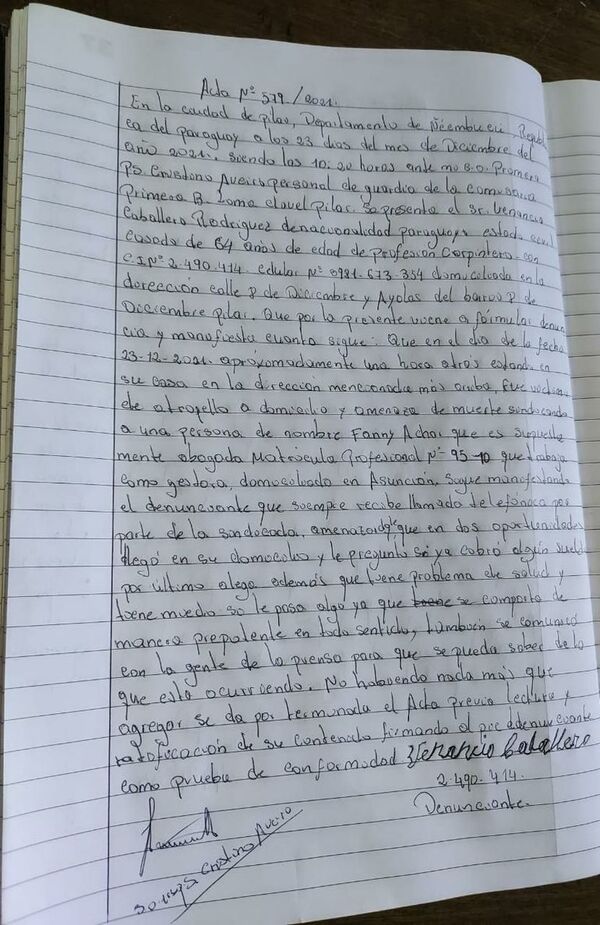 Acta Nº 579/2021.
En la ciudad de Pilar, Departamento de Ñeembucú, Repúbli
ca del paraguay a los 23 dias del mes de Diciembre del
año 2021. siendo las 10:20 horas ante mi S.O. Primero
PS. Cristino Aveiro personal de guardia de la comisaria
Primera B. Loma clavel pilar. Se presenta el sr. Venancio
Caballero Rodriguez de nacionalidad paraguaya estado civil
casado de 64 años de edad de profesión Carpintero con
C.I Nº 2.490.414. celular Nº 0981.673.354 domiciliado en la
dirección calle 8 de Diciembre y Ayolas del barrio 8 de
Diciembre pilar. Que por la presente viene a fórmular denun
cia y manifiesta cuanto sigue: Que en el dia de la fecha
23-12-2021. apróximadamente una hora atrás estando en
su casa en la dirección mencionada más arriba, fue victima
de atropello a domicilio y amenaza de muerte sindicando
a una persona de nombre Fanny Achar que es supuesta
mente abogada Matrícula Profesional Nº 95-10 que trabaja
como gestora, domiciliado en Asunción, sigue manifestando
el denunciante que siempre recibe llamada telefónica por
parte de la sindicada, que en dos oportunidades
llegó en su domicilio y le preguntó si ya cobró algún sueldo
por último alega además que tiene problema de salud y
tiene miedo si le pasa algo ya que se comporta de
manera prepotente en todo sentido, también se comunicó
con la gente de la prensa para que se pueda saber de lo
que está ocurriendo. No habiendo nada más que
agregar se da por terminada el Acta previa lectura y
ratificación de su contenido firmando al pie el denunciante
como prueba de conformidad Venancio Caballero
2.490.414.
Denunciante.
S.O. Cristino Aveiro